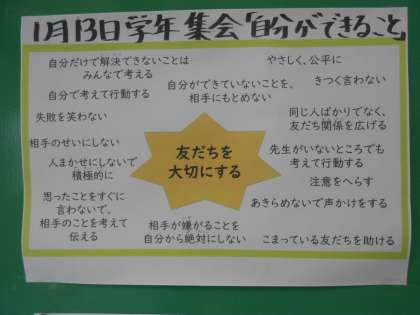 1月13日学年集会「自分ができること」
自分だけで解決できないことは
みんなで考える
やさしく、公平に
自分で考えて行動する
自分ができていないことを、
相手にもとめない
きつく言わない
失敗を笑わない
同じ人ばかりでなく、
友だち関係を広げる
相手のせいにしない
友だちを
大切にする
先生がいないところでも
考えて行動する
人まかせにしないで
積極的に
注意をへらす
思ったことをすぐに
言わないで、
相手のことを考えて
伝える
あきらめないで声かけをする
相手が嫌がることを
自分から絶対にしない
こまっている友だちを助ける